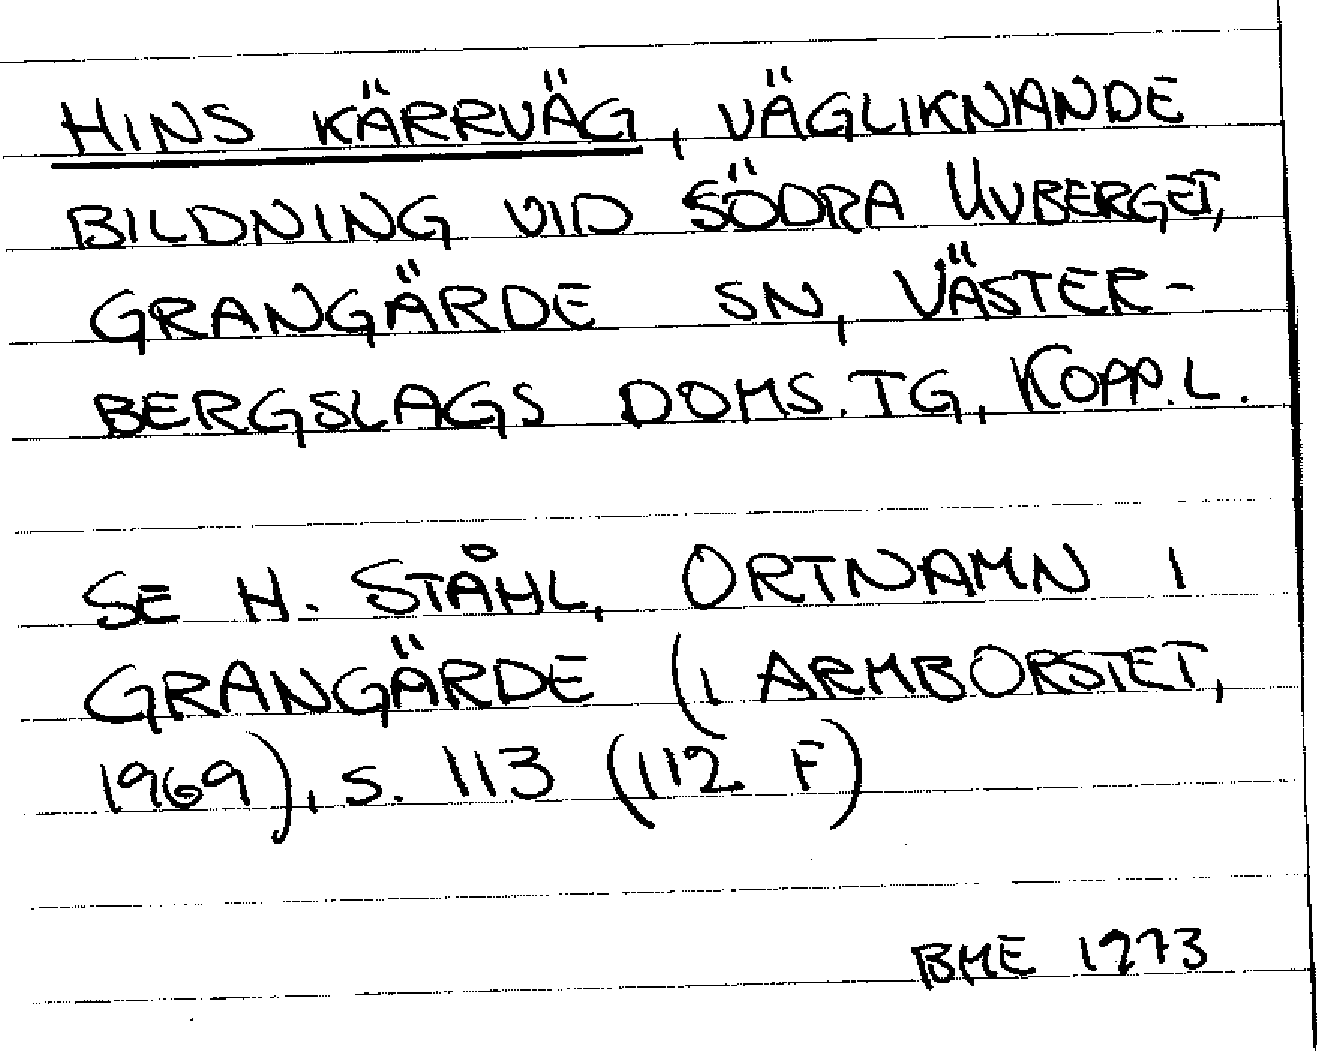 HINS KÄRRVÄG, VÄGLIKNANDE
BILDNING VID SÖDRA UVBERGET,
GRANGÄRDE SN, VÄSTER-
BERGSLAGS DOMS. TG, KOPP. L.
SE H. STÅHL, ORTNAMN I
GRANGÄRDE (I ARMBORSTET,
1969), S. 113 (112 F)
BME 1973